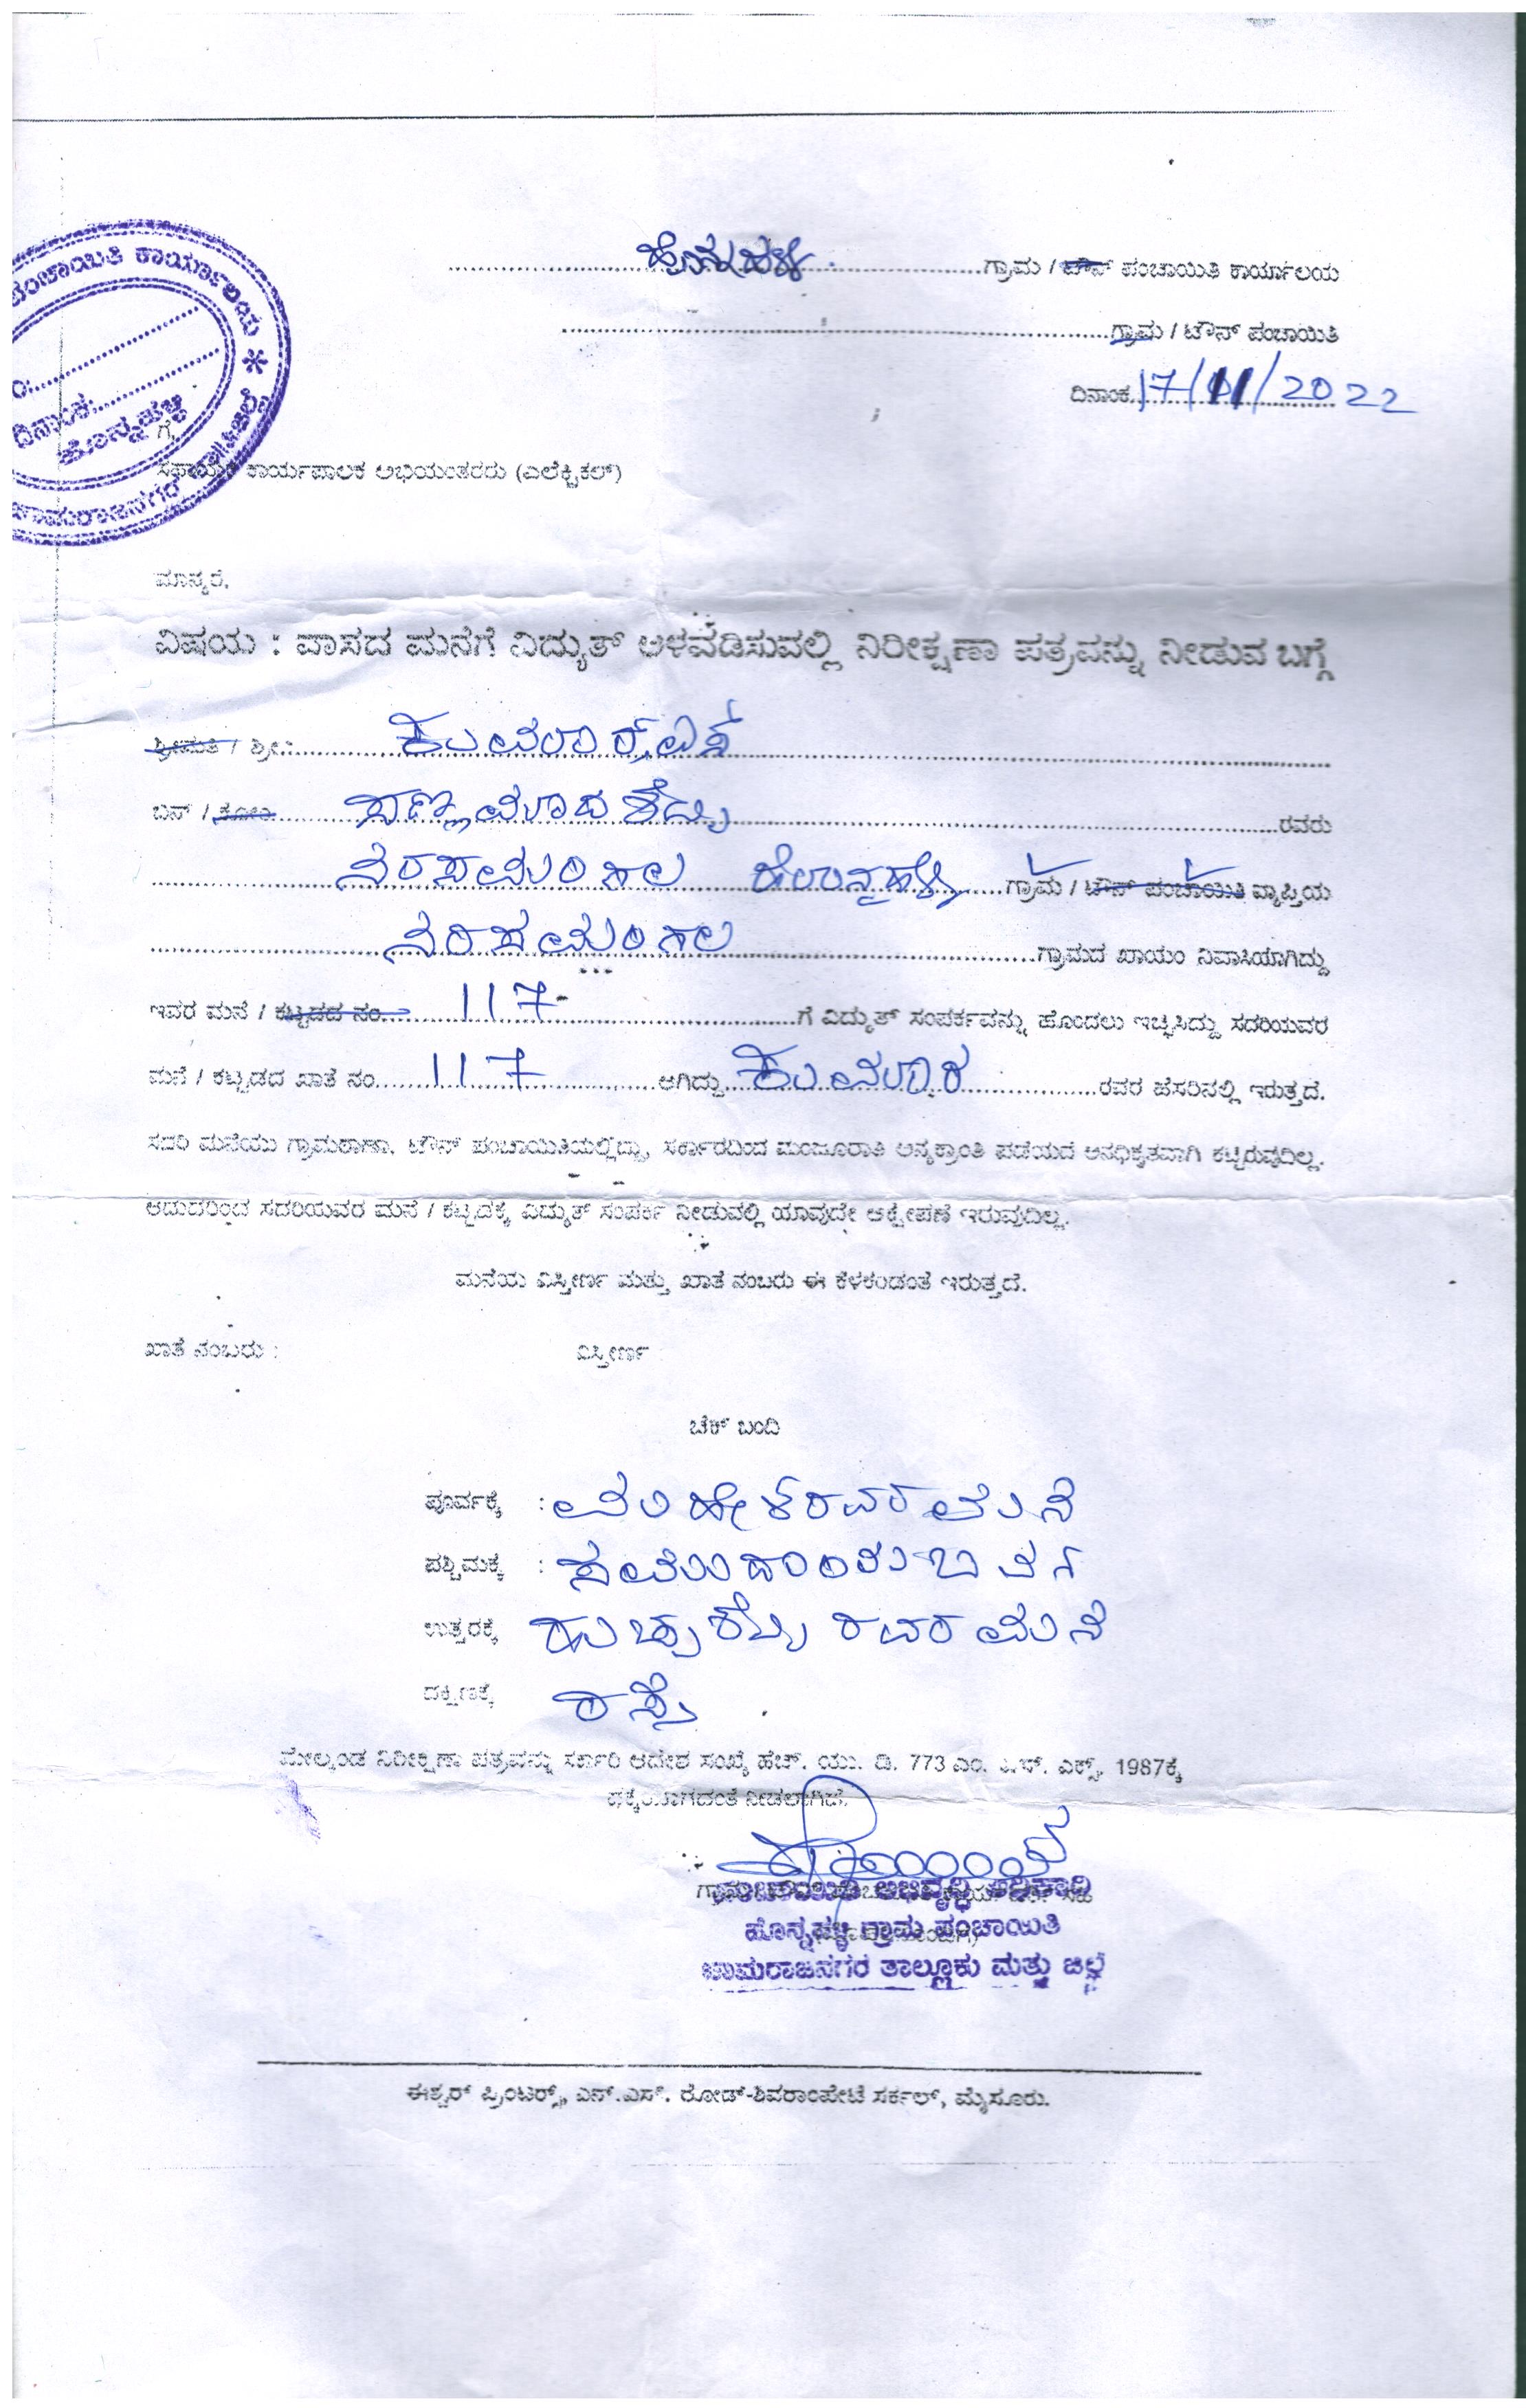 ಹೊನ್ನಹಳ್ಳಿ ಗ್ರಾಮ / ಟೌನ್ ಪಂಚಾಯಿತಿ ಕಾರ್ಯಾಲಯ
ಗ್ರಾಮ / ಟೌನ್ ಪಂಚಾಯಿತಿ
ದಿನಾಂಕ 17/11/2022
ಪಂಚಾಯಿತಿ ಕಾರ್ಯಾಲಯ *
ದಿನಾಂಕ:
ಹೊನ್ನಹಳ್ಳಿ
ಚಾಮರಾಜನಗರ
ಗೆ,
ಸಹಾಯಕ ಕಾರ್ಯಪಾಲಕ ಅಭಿಯಂತರರು (ಎಲೆಕ್ಟ್ರಿಕಲ್)
ಮಾನ್ಯರೆ,
ವಿಷಯ : ವಾಸದ ಮನೆಗೆ ವಿದ್ಯುತ್ ಅಳವಡಿಸುವಲ್ಲಿ ನಿರೀಕ್ಷಣಾ ಪತ್ರವನ್ನು ನೀಡುವ ಬಗ್ಗೆ
ಶ್ರೀಮತಿ / ಶ್ರೀ :
ಬಿನ್ / ಕೋಂ ಸಣ್ಣಮಾದಶೆಟ್ಟಿ ರವರು
ನಂಜೇದೇವನಪುರ ಗ್ರಾಮ / ಟೌನ್ ಪಂಚಾಯಿತಿ ವ್ಯಾಪ್ತಿಯ
ಗ್ರಾಮದ ಖಾಯಂ ನಿವಾಸಿಯಾಗಿದ್ದು
ಇವರ ಮನೆ / ಕಟ್ಟಡದ ನಂ. 117 ಗೆ ವಿದ್ಯುತ್ ಸಂಪರ್ಕವನ್ನು ಹೊಂದಲು ಇಚ್ಛಿಸಿದ್ದು ಸದರಿಯವರ
ಮನೆ / ಕಟ್ಟಡದ ಖಾತೆ ನಂ. 117 ಆಗಿದ್ದು ಕುಮಾರ ರವರ ಹೆಸರಿನಲ್ಲಿ ಇರುತ್ತದೆ.
ಸದರಿ ಮನೆಯು ಗ್ರಾಮಠಾಣಾ, ಟೌನ್ ಪಂಚಾಯಿತಿಯಲ್ಲಿದ್ದು, ಸರ್ಕಾರದಿಂದ ಮಂಜೂರಾತಿ ಅನ್ಯಕ್ರಾಂತಿ ಪಡೆಯದೆ ಅನಧಿಕೃತವಾಗಿ ಕಟ್ಟಿರುವುದಿಲ್ಲ.
ಆದುದರಿಂದ ಸದರಿಯವರ ಮನೆ / ಕಟ್ಟಡಕ್ಕೆ ವಿದ್ಯುತ್ ಸಂಪರ್ಕ ನೀಡುವಲ್ಲಿ ಯಾವುದೇ ಆಕ್ಷೇಪಣೆ ಇರುವುದಿಲ್ಲ.
ಮನೆಯ ವಿಸ್ತೀರ್ಣ ಮತ್ತು ಖಾತೆ ನಂಬರು ಈ ಕೆಳಕಂಡಂತೆ ಇರುತ್ತದೆ.
ಖಾತೆ ನಂಬರು : ವಿಸ್ತೀರ್ಣ
ಚೆಕ್ ಬಂದಿ
ಪೂರ್ವಕ್ಕೆ : ಮಹೇಶರವರ ಮನೆ
ಪಶ್ಚಿಮಕ್ಕೆ :
ಉತ್ತರಕ್ಕೆ ರವರ ಮನೆ
ದಕ್ಷಿಣಕ್ಕೆ ರಸ್ತೆ
ಮೇಲ್ಕಂಡ ನಿರೀಕ್ಷಣಾ ಪತ್ರವನ್ನು ಸರ್ಕಾರಿ ಆದೇಶ ಸಂಖ್ಯೆ ಹೆಚ್. ಯು. ಡಿ. 773 ಎಂ. ಎನ್. ಎಕ್ಸ್. 1987ಕ್ಕೆ
ಧಕ್ಕೆಯಾಗದಂತೆ ನೀಡಲಾಗಿದೆ.
ಅಭಿವೃದ್ಧಿ ಅಧಿಕಾರಿ
ಹೊನ್ನಹಳ್ಳಿ ಗ್ರಾಮ ಪಂಚಾಯಿತಿ
ಚಾಮರಾಜನಗರ ತಾಲ್ಲೂಕು ಮತ್ತು ಜಿಲ್ಲೆ
ಈಶ್ವರ್ ಪ್ರಿಂಟರ್ಸ್, ಎನ್.ಎಸ್. ರೋಡ್-ಶಿವರಾಂಪೇಟೆ ಸರ್ಕಲ್, ಮೈಸೂರು.